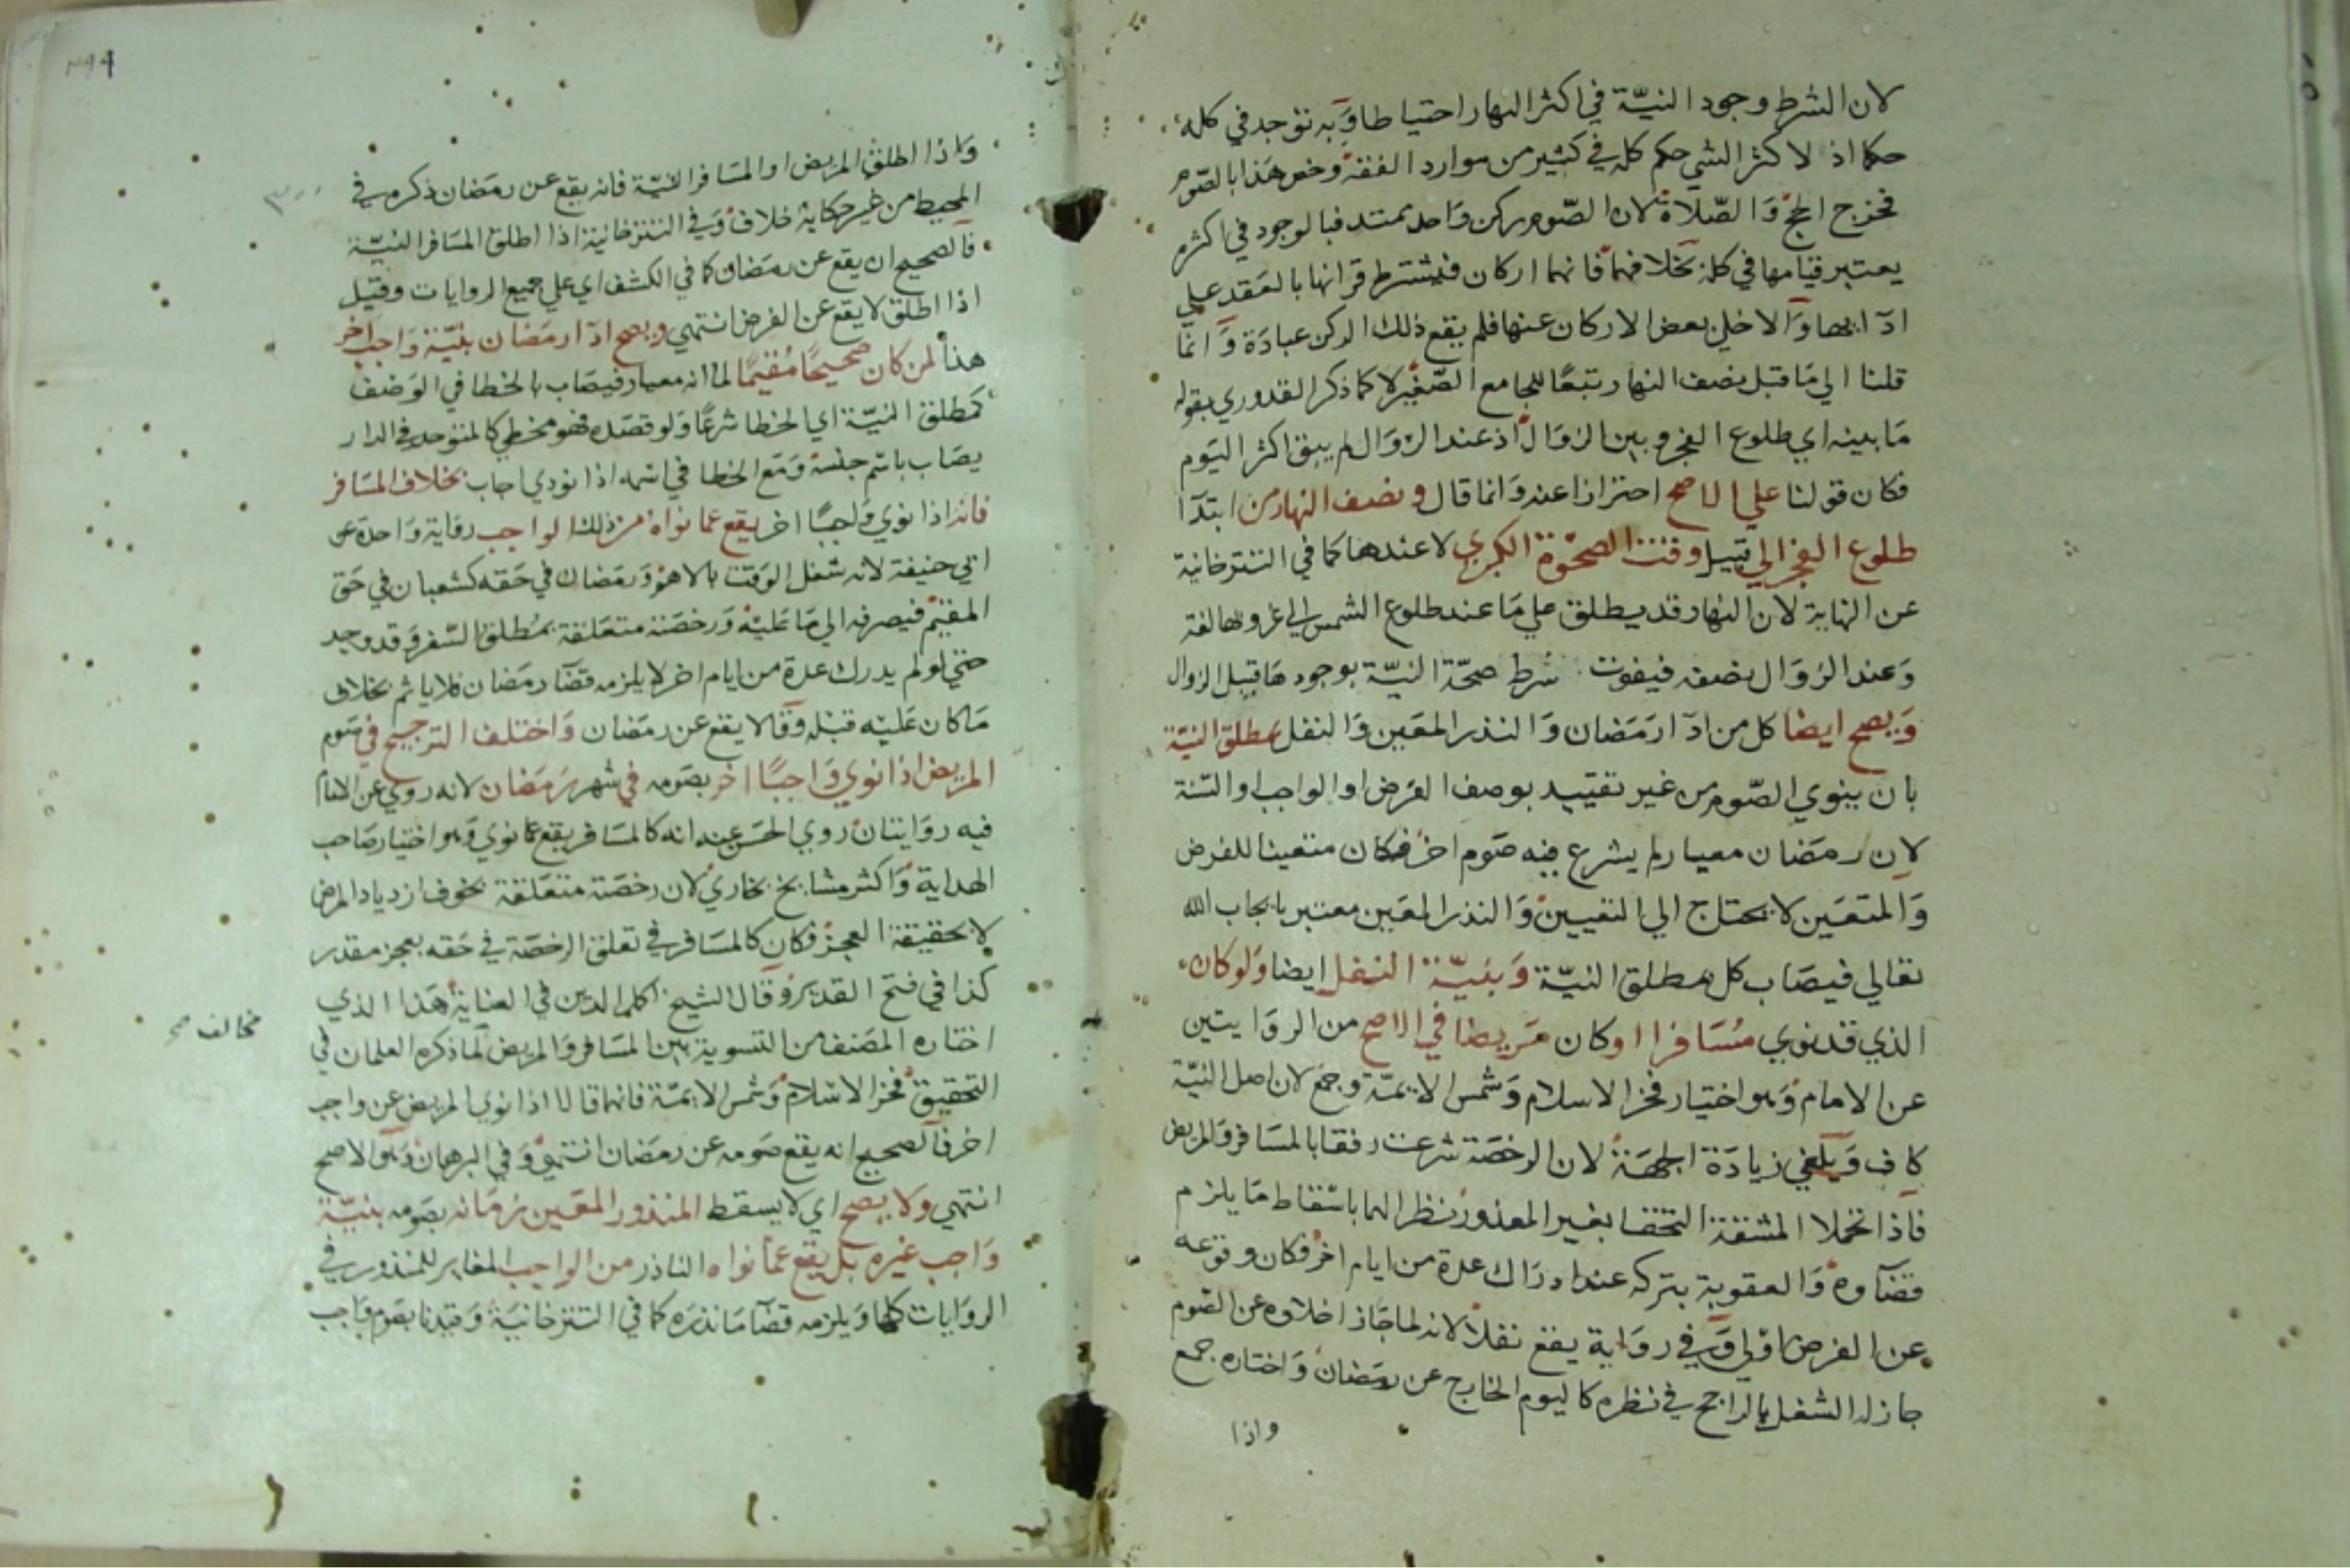 لان الشرط وجود النيّة في اكثر النهار احتياطا وَبه توجد في كله
حكما اذ لاكثر الشي حكم كله في كثير من موارد الفقه وخص هَذا بالصّوم
فخرج الحج وَالصّلاة لان الصّوم ركن وَاحد ممتد فبالوجود في اكثره
يعتبر قيامها في كله بخلافهما فانهما اركان فيشترط قرانها بالعَقد على
ادآايها وَالا خلى بعض الاركان عنها فلم يقع ذلك الركن عبادَة وَانما
قلنا الي مَا قبل نصف النهار تبعًا للجامع الصّغير لا كما ذكر القدوري بقوله
مَا بينه اي طلوع الفجر وبين الزوَال اذ عند الزوَال لم يبق اكثر اليَوم
فكان قولنا علي الاصح احترازا عنه وَانما قال ونصف النهار من ابتدآ
طلوع الفجر الي قبيل وقت الضحوة الكبري لا عندها كما في التترخانية
عن النهاية لان النهار قد يطلق علي مَا عند طلوع الشمس الي غروبها لغة
وَعند الزوَال نصفه فيفوت شرط صحّة النيّة بوجودها قبيل الزوال
وَيصح ايضا كل من ادآ رمَضان وَالنذر المعَين وَالنفل بمطلق النيّة
بان ينوي الصّوم من غير تقييد بوصف الفرض او الواجب او السّنة
لان رمَضان معيار لم يشرع فيه صَوم اخر فكان متعينا للفرض
وَالمتعَين لا يحتاج الي التعيين وَالنذر المعَين معتبر بايجاب الله
تعالي فيصَاب كل بمطلق النيّة وَبنيّة النفل ايضا وَلوكان
الذي قد نوي مُسَافرا اوكان مَريضا في الاصح من الروَايتين
عن الامام وَهو اختيار فخر الاسلام وَشمس الايمّة وجمع لان اصل النيّة
كاف وَيلغي زيادَة الجهَة لان الرخصَة شرعت رفقا بالمسَافر وَالمريض
فآذا تحملا المشقة التحقا بغير المعذور نظرا لهما باسْقاط مَا يلزم
قضآوه وَالعقوبة بتركه عند ادرَاك عدة من ايام اخر فكان وقوعه
عن الفرض اولي وَفي روَاية يقع نفلا لانه لما جَاز اخلاوه عن الصّوم
جاز له الشغل بالراجح في نظره كاليوم الخارج عن رمَضان وَاختاره جمع
واذا
وَاذا اطلق المريض او المسَافر النيّة فانه يقع عن رمَضان ذكره في
المحيط من غير حكاية خلاف وَفي التترخانية اذا اطلق المسَافر النيّة
فآلصحيح ان يقع عن رمَضان كما في الكشف اي علي جميع الروايات وقيل
اذا اطلق لا يقع عن الفرض انتهي ويصح ادآ رمَضان بنيّة وَاجب اخر
هذا لمن كان صحيحًا مُقيمًا لما انه معيار فيصَاب بالخطا في الوَصف
كمطلق النيّة اي الخطا شرعًا وَلو قصَده فهو مخطي كالمتوحد في الدار
يصَاب باسْم جنسه وَمَع الخطا في اسمه اذا نودي اجاب بخلاف المسَافر
فانه اذا نوي وَاجبًا اخر يقع عما نواه من ذلك الواجب روَاية وَاحدة عن
ابي حنيفة لانه شغل الوَقت بالاهم وَرمَضان في حَقه كشعبان في حَق
المقيم فيصرفه الي مَا عَليْه وَرخصَته متعَلقة بمُطلق السّفر وَقد وجد
حتي لو لم يدرك عدة من ايام اخر لا يلزمه قضآ رمَضان فلا ياثم بخلاف
مَا كان عَليْه قبله وَقالا يقع عن رمَضان وَاختلف الترجيح في صَوم
المريض اذا نوي وَاجبًا اخر بصَومه في شهر رَمَضان لانه روي عن الامام
فيه روَايتان روي الحسَن عنه انه كالمسَافر يقع عما نوي وَهو اختيار صَاحب
الهداية وَاكثر مشايخ بخاري لان رخصَته متعَلقة بخوف ازدياد المرض
لا بحقيقة العجز فكان كالمسَافر في تعلق الرخصَة في حَقه بعجز مقدر
كذا في فتح القدير وَقال الشيخ اكمل الدين في العناية هَذا الذي
اختاره المصَنف من التسوية بين المسَافر وَالمريض لما ذكره العلمان في
مخالف صح
التحقيق فخر الاسْلام وَشمس الايمّة فانهما قالا اذا نوي المريض عن واجب
اخر فآلصحيح انه يقع صَومه عن رمَضان انتهي وَفي البرهان وَهو الاصح
انتهي ولا يصح اي لا يسقط المنذور المعَين زمَانه بصَومه بنيّة
وَاجب غيره بل يقع عما نواه الناذر من الواجب المغاير للمنذور في
الروَايات كلها وَيلزمه قضآ مَا نذرَه كما في التترخانيَة وَقيدنا بصَوم وَاجب